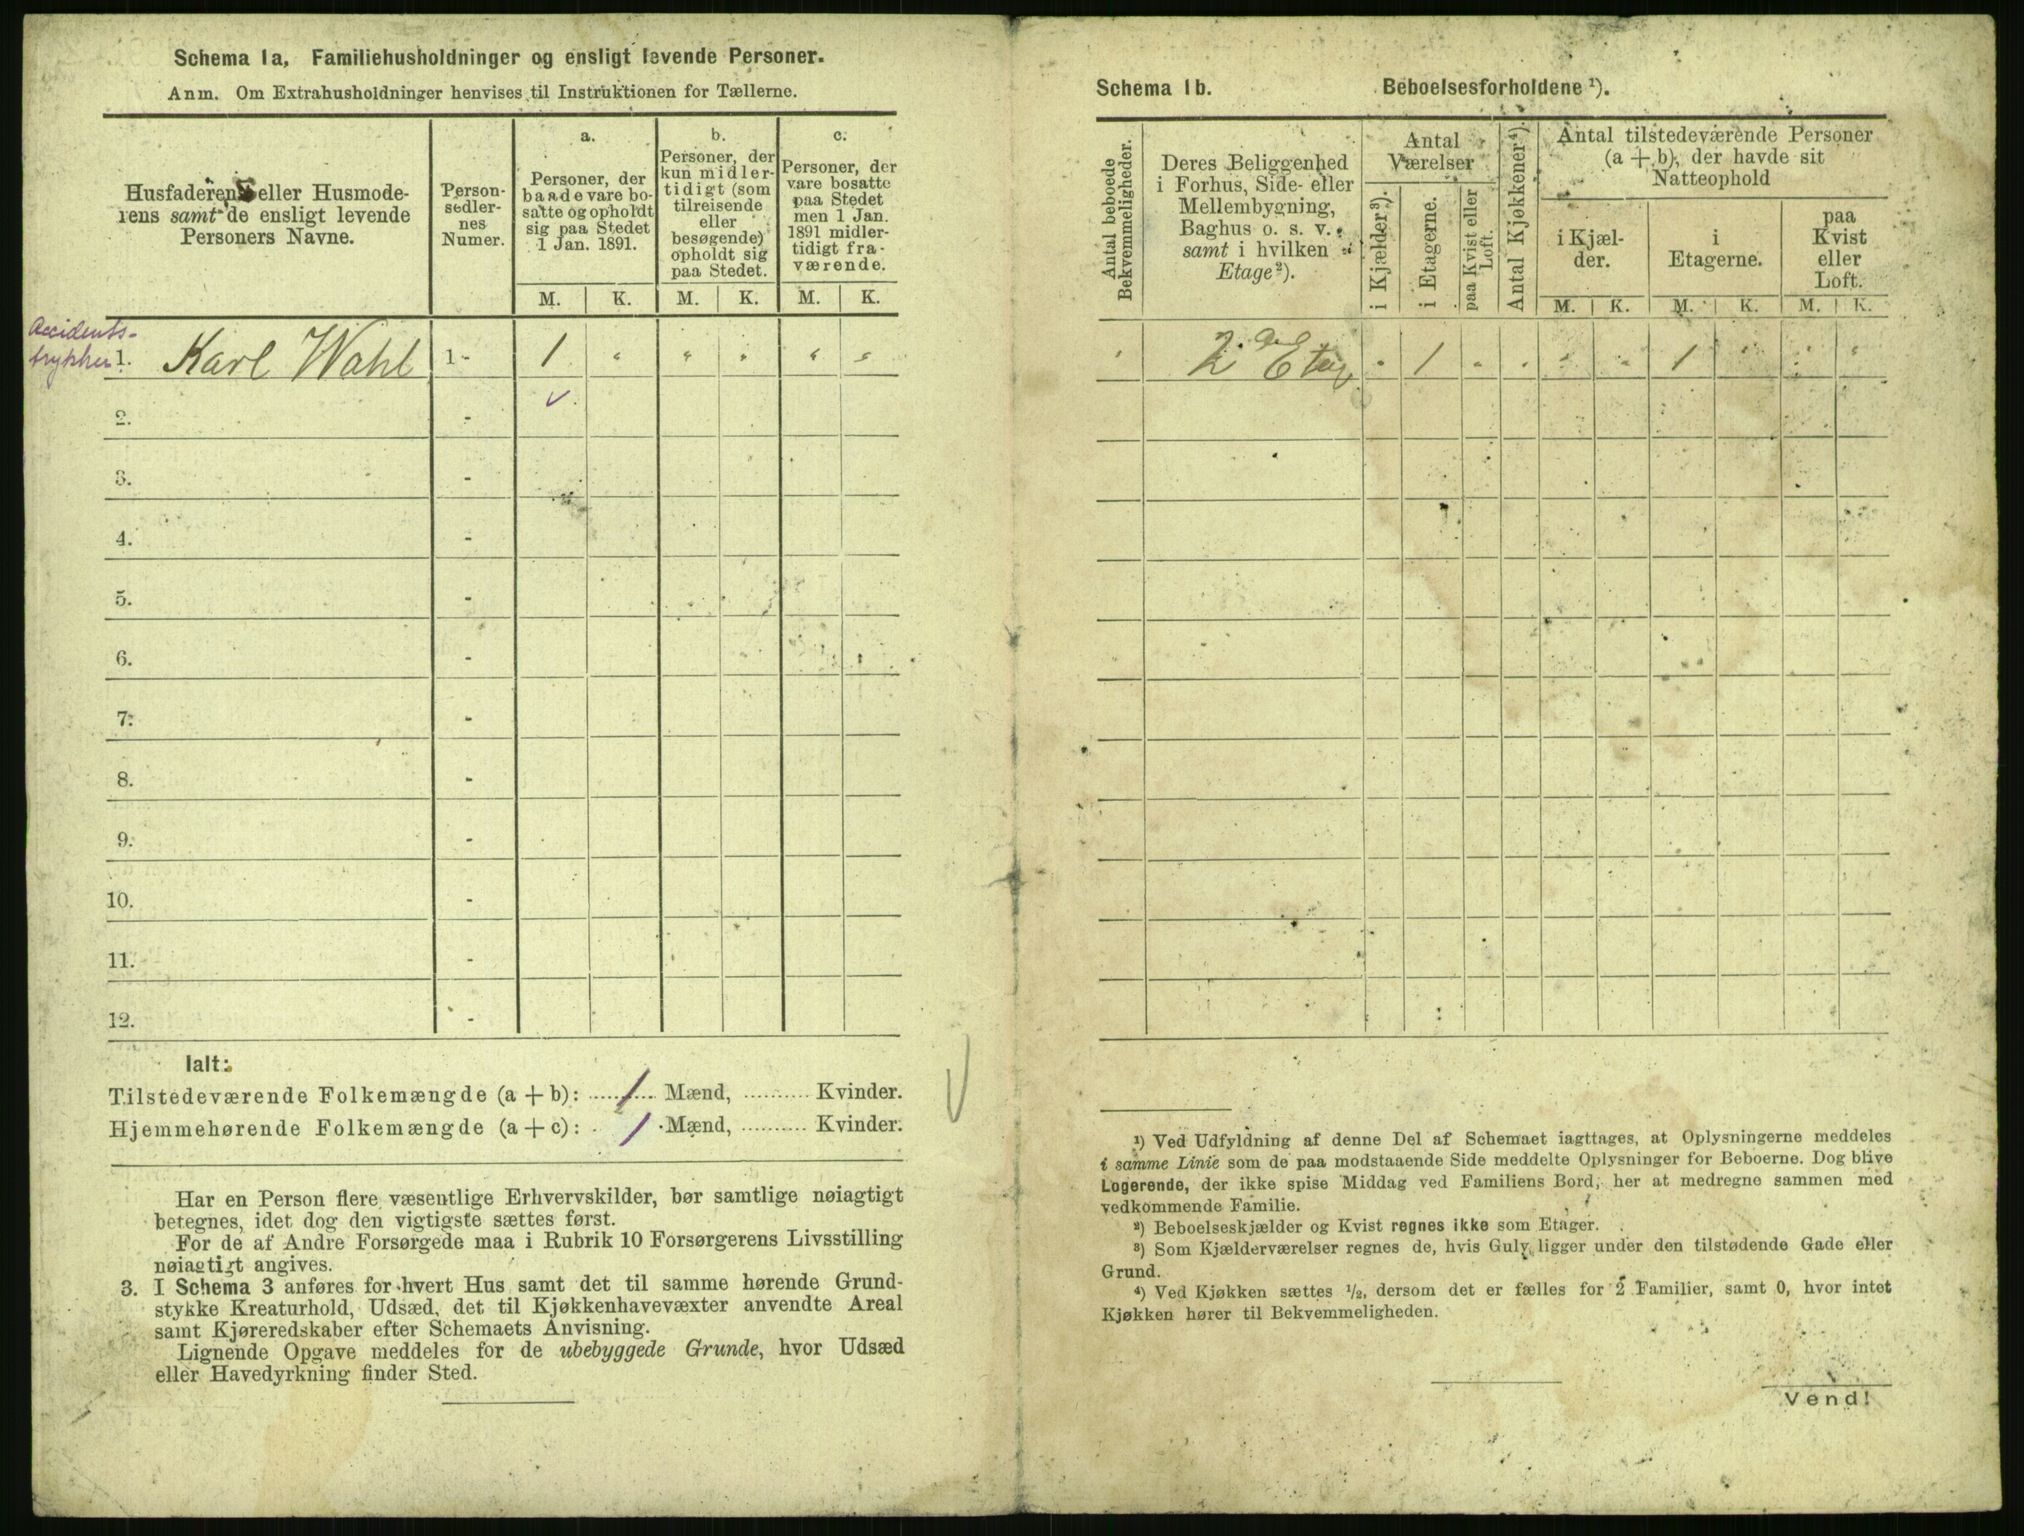 Schema 1a, Familiehusholdninger og ensligt levende Personer.
Anm. Om Extrahusholdninger henvises til Instruktionen for Tællerne.
Husfaderens eller Husmode-
rens samt de ensligt levende
Personers Navne.
Person-
sedler-
nes
Numer.
a.
Personer, der
baade vare bo-
satte og opholdt
sig paa Stedet
1 Jan. 1891.
b.
Personer, der
kun midler-
tidigt (som
tilreisende
eller
besøgende)
opholdt sig
paa Stedet.
c.
Personer, der
vare bosatte
paa Stedet
men 1 Jan.
1891 midler-
tidigt fra-
værende.
M. K. M. K. M. K.
Accidents-
trykker
1. Karl Wahl 1 - 1 " " " " "
2. -
3. -
4. -
5. -
6. -
7. -
8. -
9. -
10. -
11. -
12. -
Ialt:
Tilstedeværende Folkemængde (a + b): 1 Mænd, Kvinder.
Hjemmehørende Folkemængde (a + c): 1 Mænd, Kvinder.
Har en Person flere væsentlige Erhvervskilder, bør samtlige nøiagtigt
betegnes, idet dog den vigtigste sættes først.
For de af Andre Forsørgede maa i Rubrik 10 Forsørgerens Livsstilling
nøiagtigt angives.
3. I Schema 3 anføres for hvert Hus samt det til samme hørende Grund-
stykke Kreaturhold, Udsæd, det til Kjøkkenhavevæxter anvendte Areal
samt Kjøreredskaber efter Schemaets Anvisning.
Lignende Opgave meddeles for de ubebyggede Grunde, hvor Udsæd
eller Havedyrkning finder Sted.
Schema 1b. Beboelsesforholdene ¹).
Antal beboede
Bekvemmeligheder.
Deres Beliggenhed
i Forhus, Side- eller
Mellembygning,
Baghus o. s. v.
samt i hvilken
Etage²).
Antal
Værelser
i Kjælder³).
i Etagerne.
paa Kvist eller
Loft.
Antal Kjøkkener⁴).
Antal tilstedeværende Personer
(a + b), der havde sit
Natteophold
i Kjæl-
der.
i
Etagerne.
paa
Kvist
eller
Loft.
M. K. M. K. M. K.
" 2den Etag " 1 " " " " 1 " " "
¹) Ved Udfyldning af denne Del af Schemaet iagttages, at Oplysningerne meddeles
i samme Linie som de paa modstaaende Side meddelte Oplysninger for Beboerne. Dog blive
Logerende, der ikke spise Middag ved Familiens Bord, her at medregne sammen med
vedkommende Familie.
²) Beboelseskjælder og Kvist regnes ikke som Etager.
³) Som Kjælderværelser regnes de, hvis Gulv ligger under den tilstødende Gade eller
Grund.
⁴) Ved Kjøkken sættes ½, dersom det er fælles for 2 Familier, samt 0, hvor intet
Kjøkken hører til Bekvemmeligheden.
Vend!